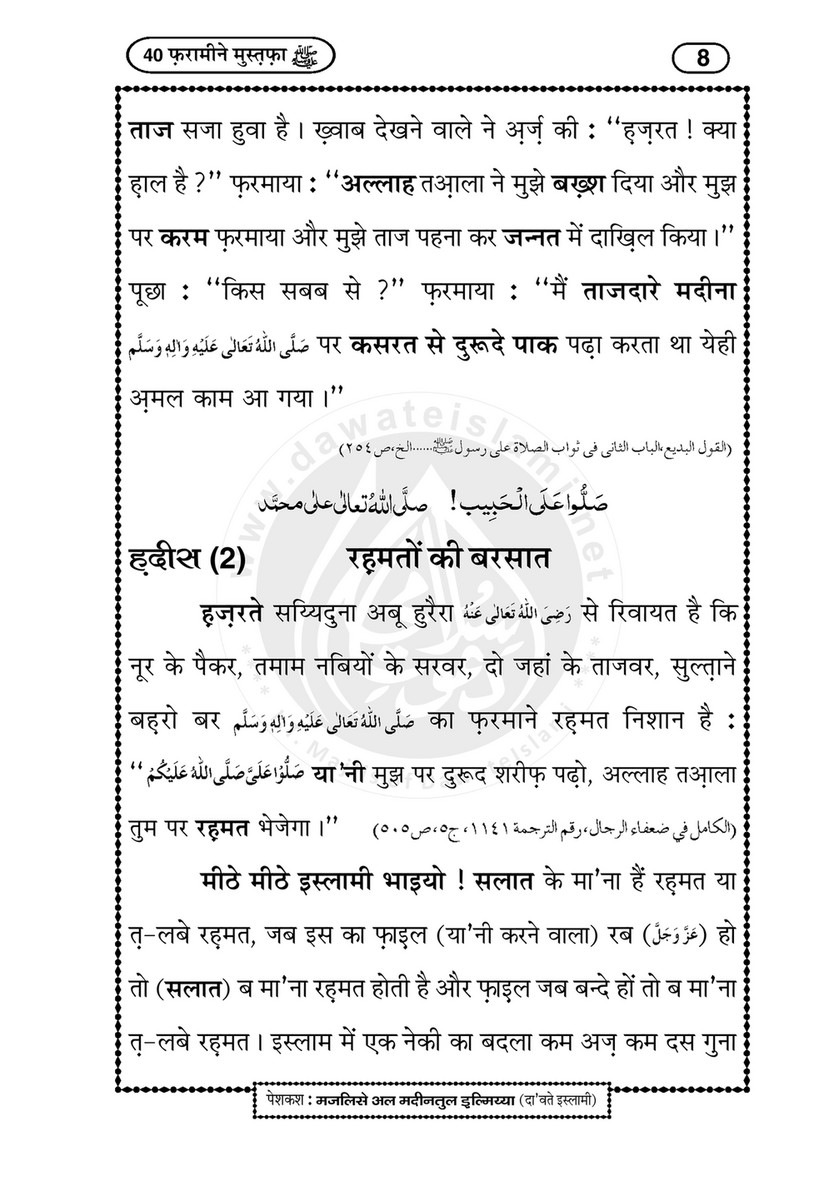 40 फ़रामीने मुस्त़फ़ा ﷺ
8
ताज सजा हुवा है । ख़्वाब देखने वाले ने अ़र्ज़ की : ‘‘ह़ज़रत ! क्या
ह़ाल है ?’’ फ़रमाया : ‘‘अल्लाह तआ़ला ने मुझे बख़्श दिया और मुझ
पर करम फ़रमाया और मुझे ताज पहना कर जन्नत में दाख़िल किया ।’’
पूछा : ‘‘किस सबब से ?’’ फ़रमाया : ‘‘मैं ताजदारे मदीना
صَلَّى اللهُ تَعَالٰى عَلَيْهِ وَاٰلِهٖ وَسَلَّم पर कसरत से दुरूदे पाक पढ़ा करता था येही
अ़मल काम आ गया ।’’
(القول البديع،الباب الثانى فى ثواب الصلاة على رسول ﷺ......الخ،ص٢٥٤)
صَلُّوا عَلَى الْحَبِيب! صلَّى اللهُ تعالٰى على محمَّد
ह़दीस (2) रह़मतों की बरसात
ह़ज़रते सय्यिदुना अबू हुरैरा رَضِىَ اللهُ تَعَالٰى عَنْهُ से रिवायत है कि
नूर के पैकर, तमाम नबियों के सरवर, दो जहां के ताजवर, सुल्त़ाने
बह़रो बर صَلَّى اللهُ تَعَالٰى عَلَيْهِ وَاٰلِهٖ وَسَلَّم का फ़रमाने रह़मत निशान है :
‘‘صَلُّوْا عَلَىَّ صَلَّى اللهُ عَلَيْكُمْ या’नी मुझ पर दुरूद शरीफ़ पढ़ो, अल्लाह तआ़ला
तुम पर रह़मत भेजेगा ।’’ (الكامل في ضعفاء الرجال،رقم الترجمة ١١٤١، ج٥،ص٥٠٥)
मीठे मीठे इस्लामी भाइयो ! सलात के मा’ना हैं रह़मत या
त़-लबे रह़मत, जब इस का फ़ाइल (या’नी करने वाला) रब (عَزَّ وَجَلَّ) हो
तो (सलात) ब मा’ना रह़मत होती है और फ़ाइल जब बन्दे हों तो ब मा’ना
त़-लबे रह़मत । इस्लाम में एक नेकी का बदला कम अज़ कम दस गुना
पेशकश : मजलिसे अल मदीनतुल इल्मिय्या (दा’वते इस्लामी)
www.dawateislami.net